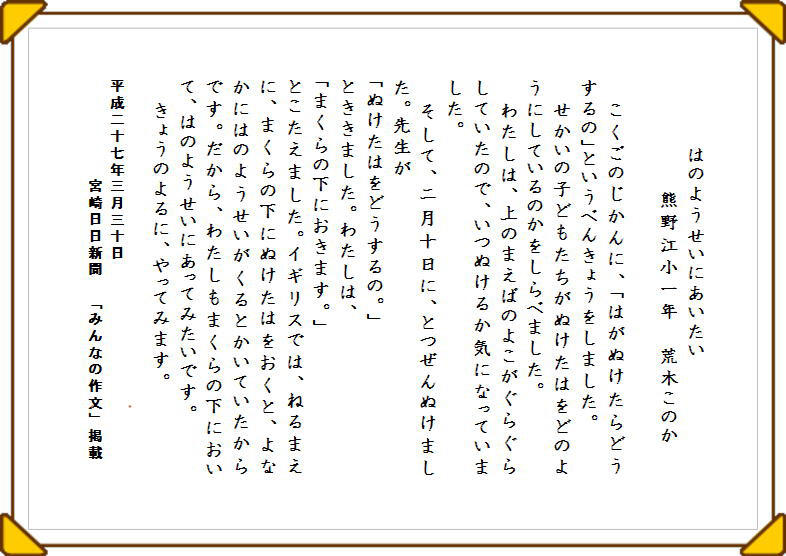 はのようせいにあいたい
熊野江小一年　荒木このか
こくごのじかんに、「はがぬけたらどう
するの」というべんきょうをしました。
せかいの子どもたちがぬけたはをどのよ
うにしているのかをしらべました。
わたしは、上のまえばのよこがぐらぐら
していたので、いつぬけるか気になっていま
した。
そして、二月十日に、とつぜんぬけまし
た。先生が
「ぬけたはをどうするの。」
とききました。わたしは、
「まくらの下におきます。」
とこたえました。イギリスでは、ねるまえ
に、まくらの下にぬけたはをおくと、よな
かにはのようせいがくるとかいていたから
です。だから、わたしもまくらの下におい
て、はのようせいにあってみたいです。
きょうのよるに、やってみます。
平成二十七年三月三十日
宮崎日日新聞　「みんなの作文」掲載